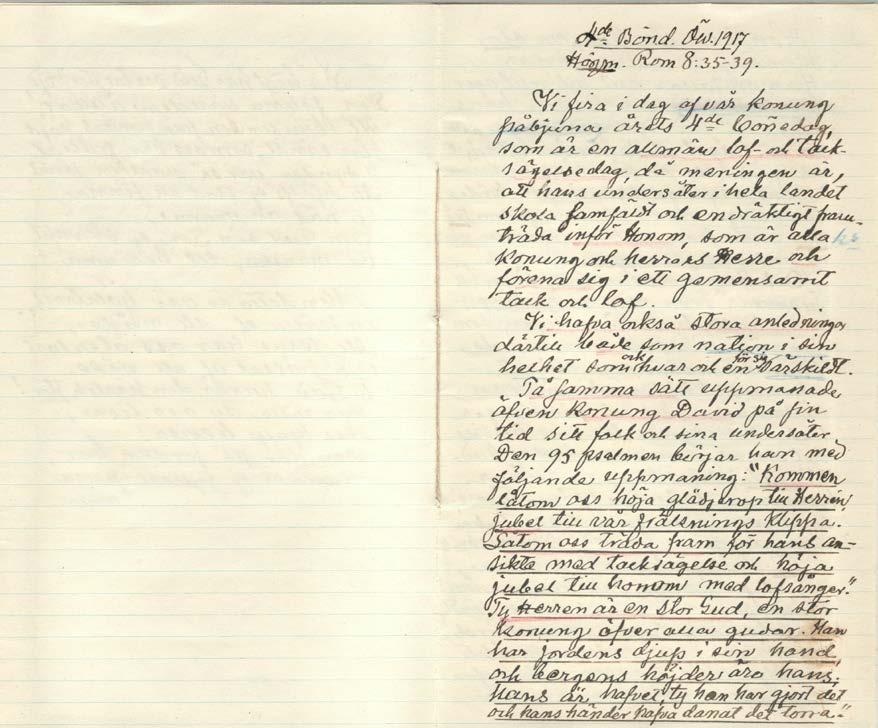 4de Bönd. Öw. 1917
Högm. Rom 8:35-39.
Vi fira i dag af vår konung
påbjuna årets 4de bönedag,
som är en allmän lof- och tack-
sägelsedag, då meningen är,
att hans undersåter i hela landet
skola samfäldt och endräktigt fram-
träda inför Honom, som är alla ks
konung och herrars Herre och
förena sig i ett gemensamt
tack och lof.
Vi hafva också stora anledningar
därtill både som nation i sin
helhet som och hvar och en för sig särskildt.
På samma sätt uppmanade
äfven konung David på sin
tid sitt folk och sina undersåter.
Den 95 psalmen börjar han med
följande uppmaning: "Kommen
låtom oss höja glädjerop till Herren,
jubel till vår frälsnings klippa.
Låtom oss träda fram för hans an-
sikte med tacksägelse och höja
jubel till honom med lofsånger."
Ty Herren är en stor Gud, en stor
konung öfver alla gudar. Han
har jordens djup i sin hand
och bergens höjder äro hans;
hans är hafvet ty han har gjort det
och hans händer hafva danat det torra."